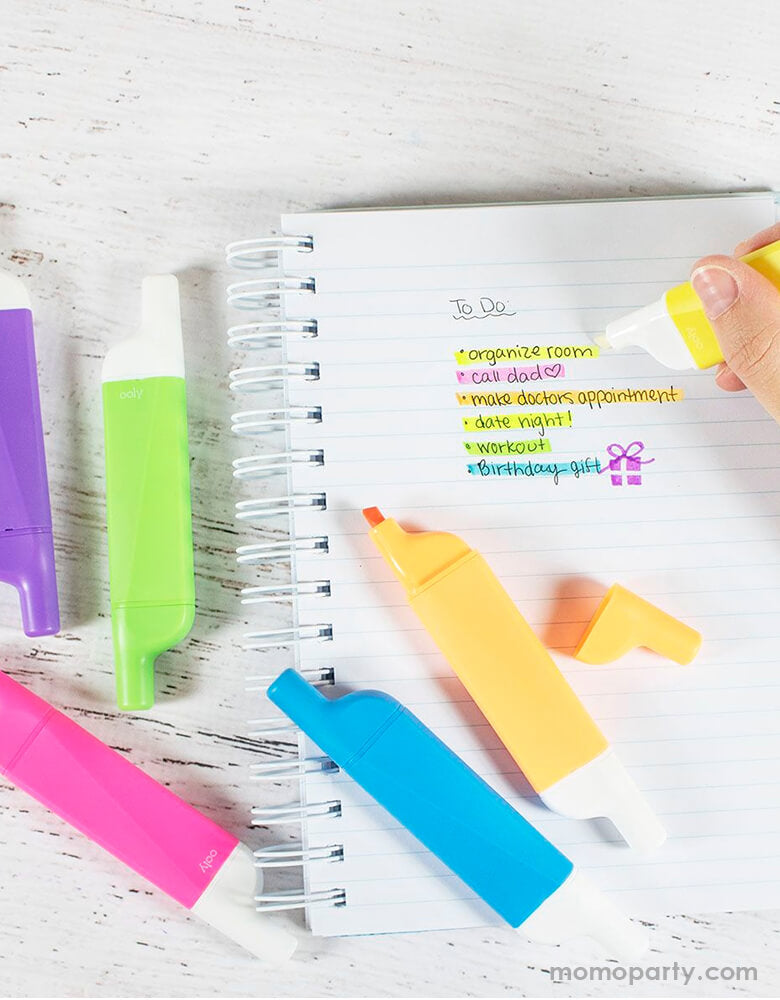 To Do:
• organize room
• call dad♡
• make doctors appointment
• date night!
• workout
• Birthday gift
ooly
ooly
ooly
ooly
momoparty.com